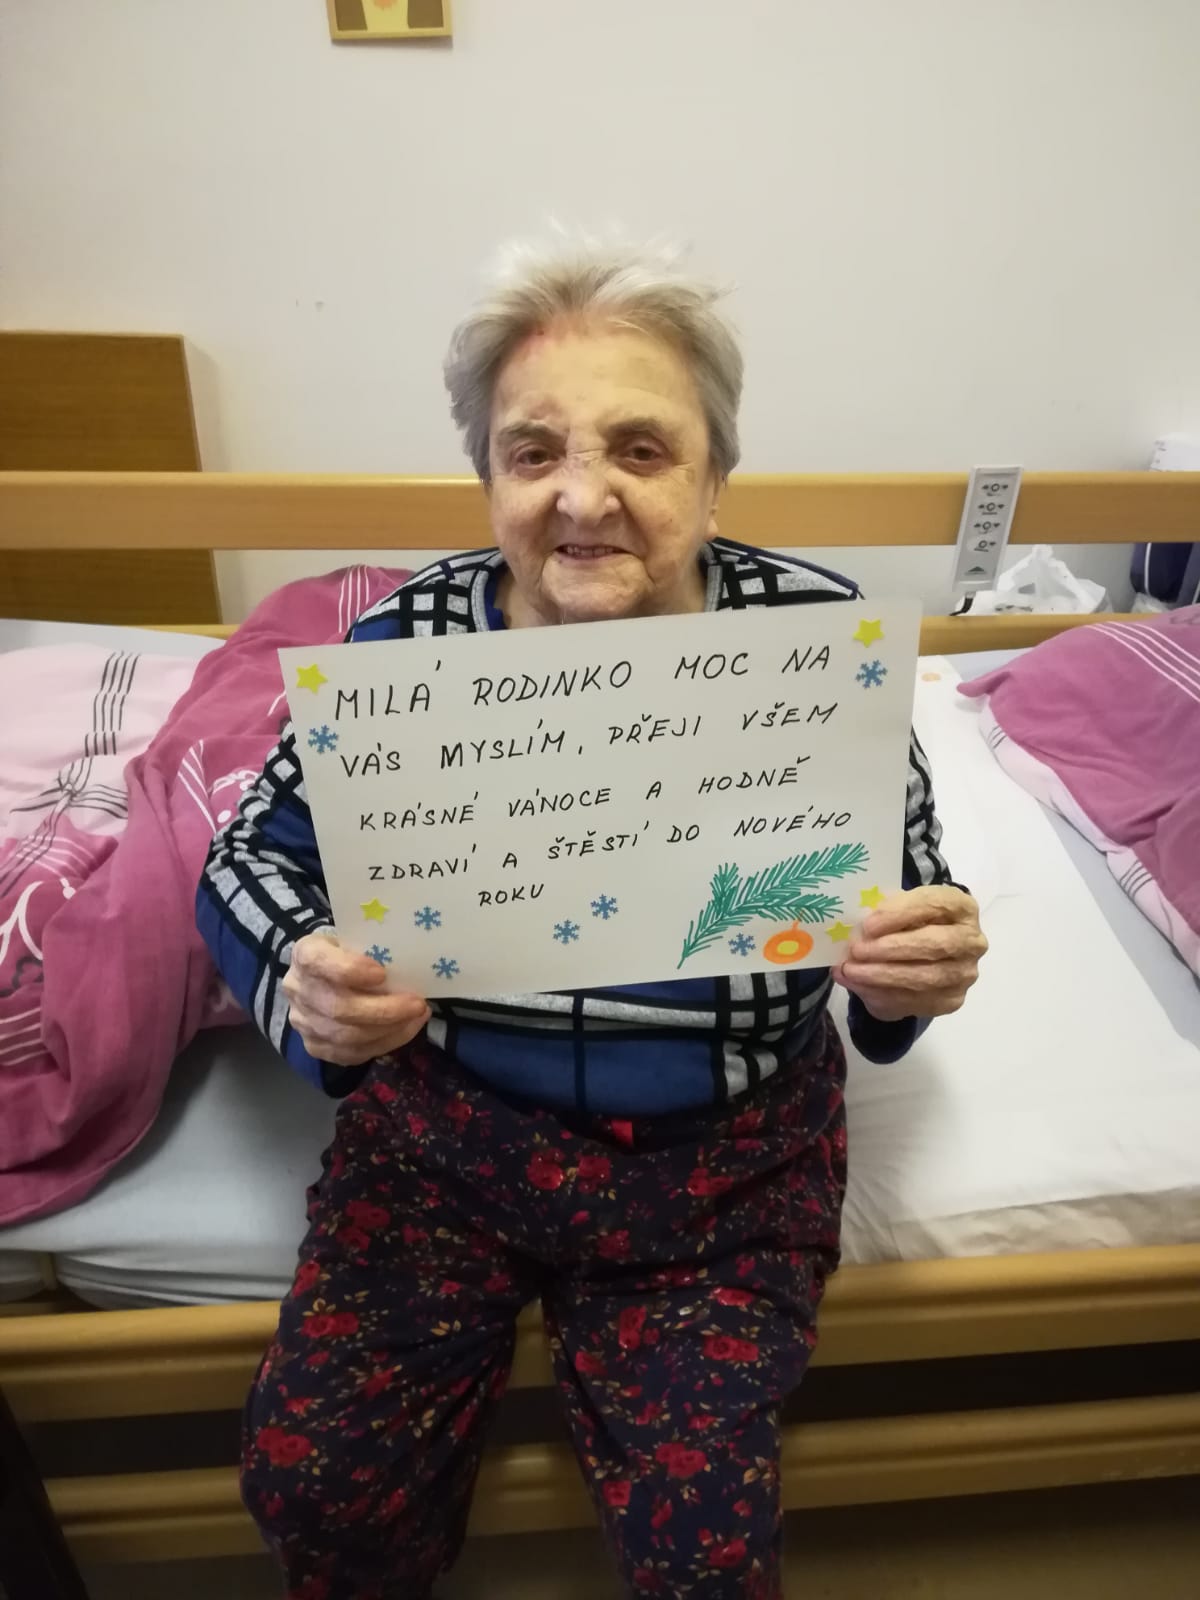 MILÁ RODINKO MOC NA
VÁS MYSLÍM, PŘEJI VŠEM
KRÁSNÉ VÁNOCE A HODNĚ
ZDRAVÍ A ŠTĚSTÍ DO NOVÉHO
ROKU